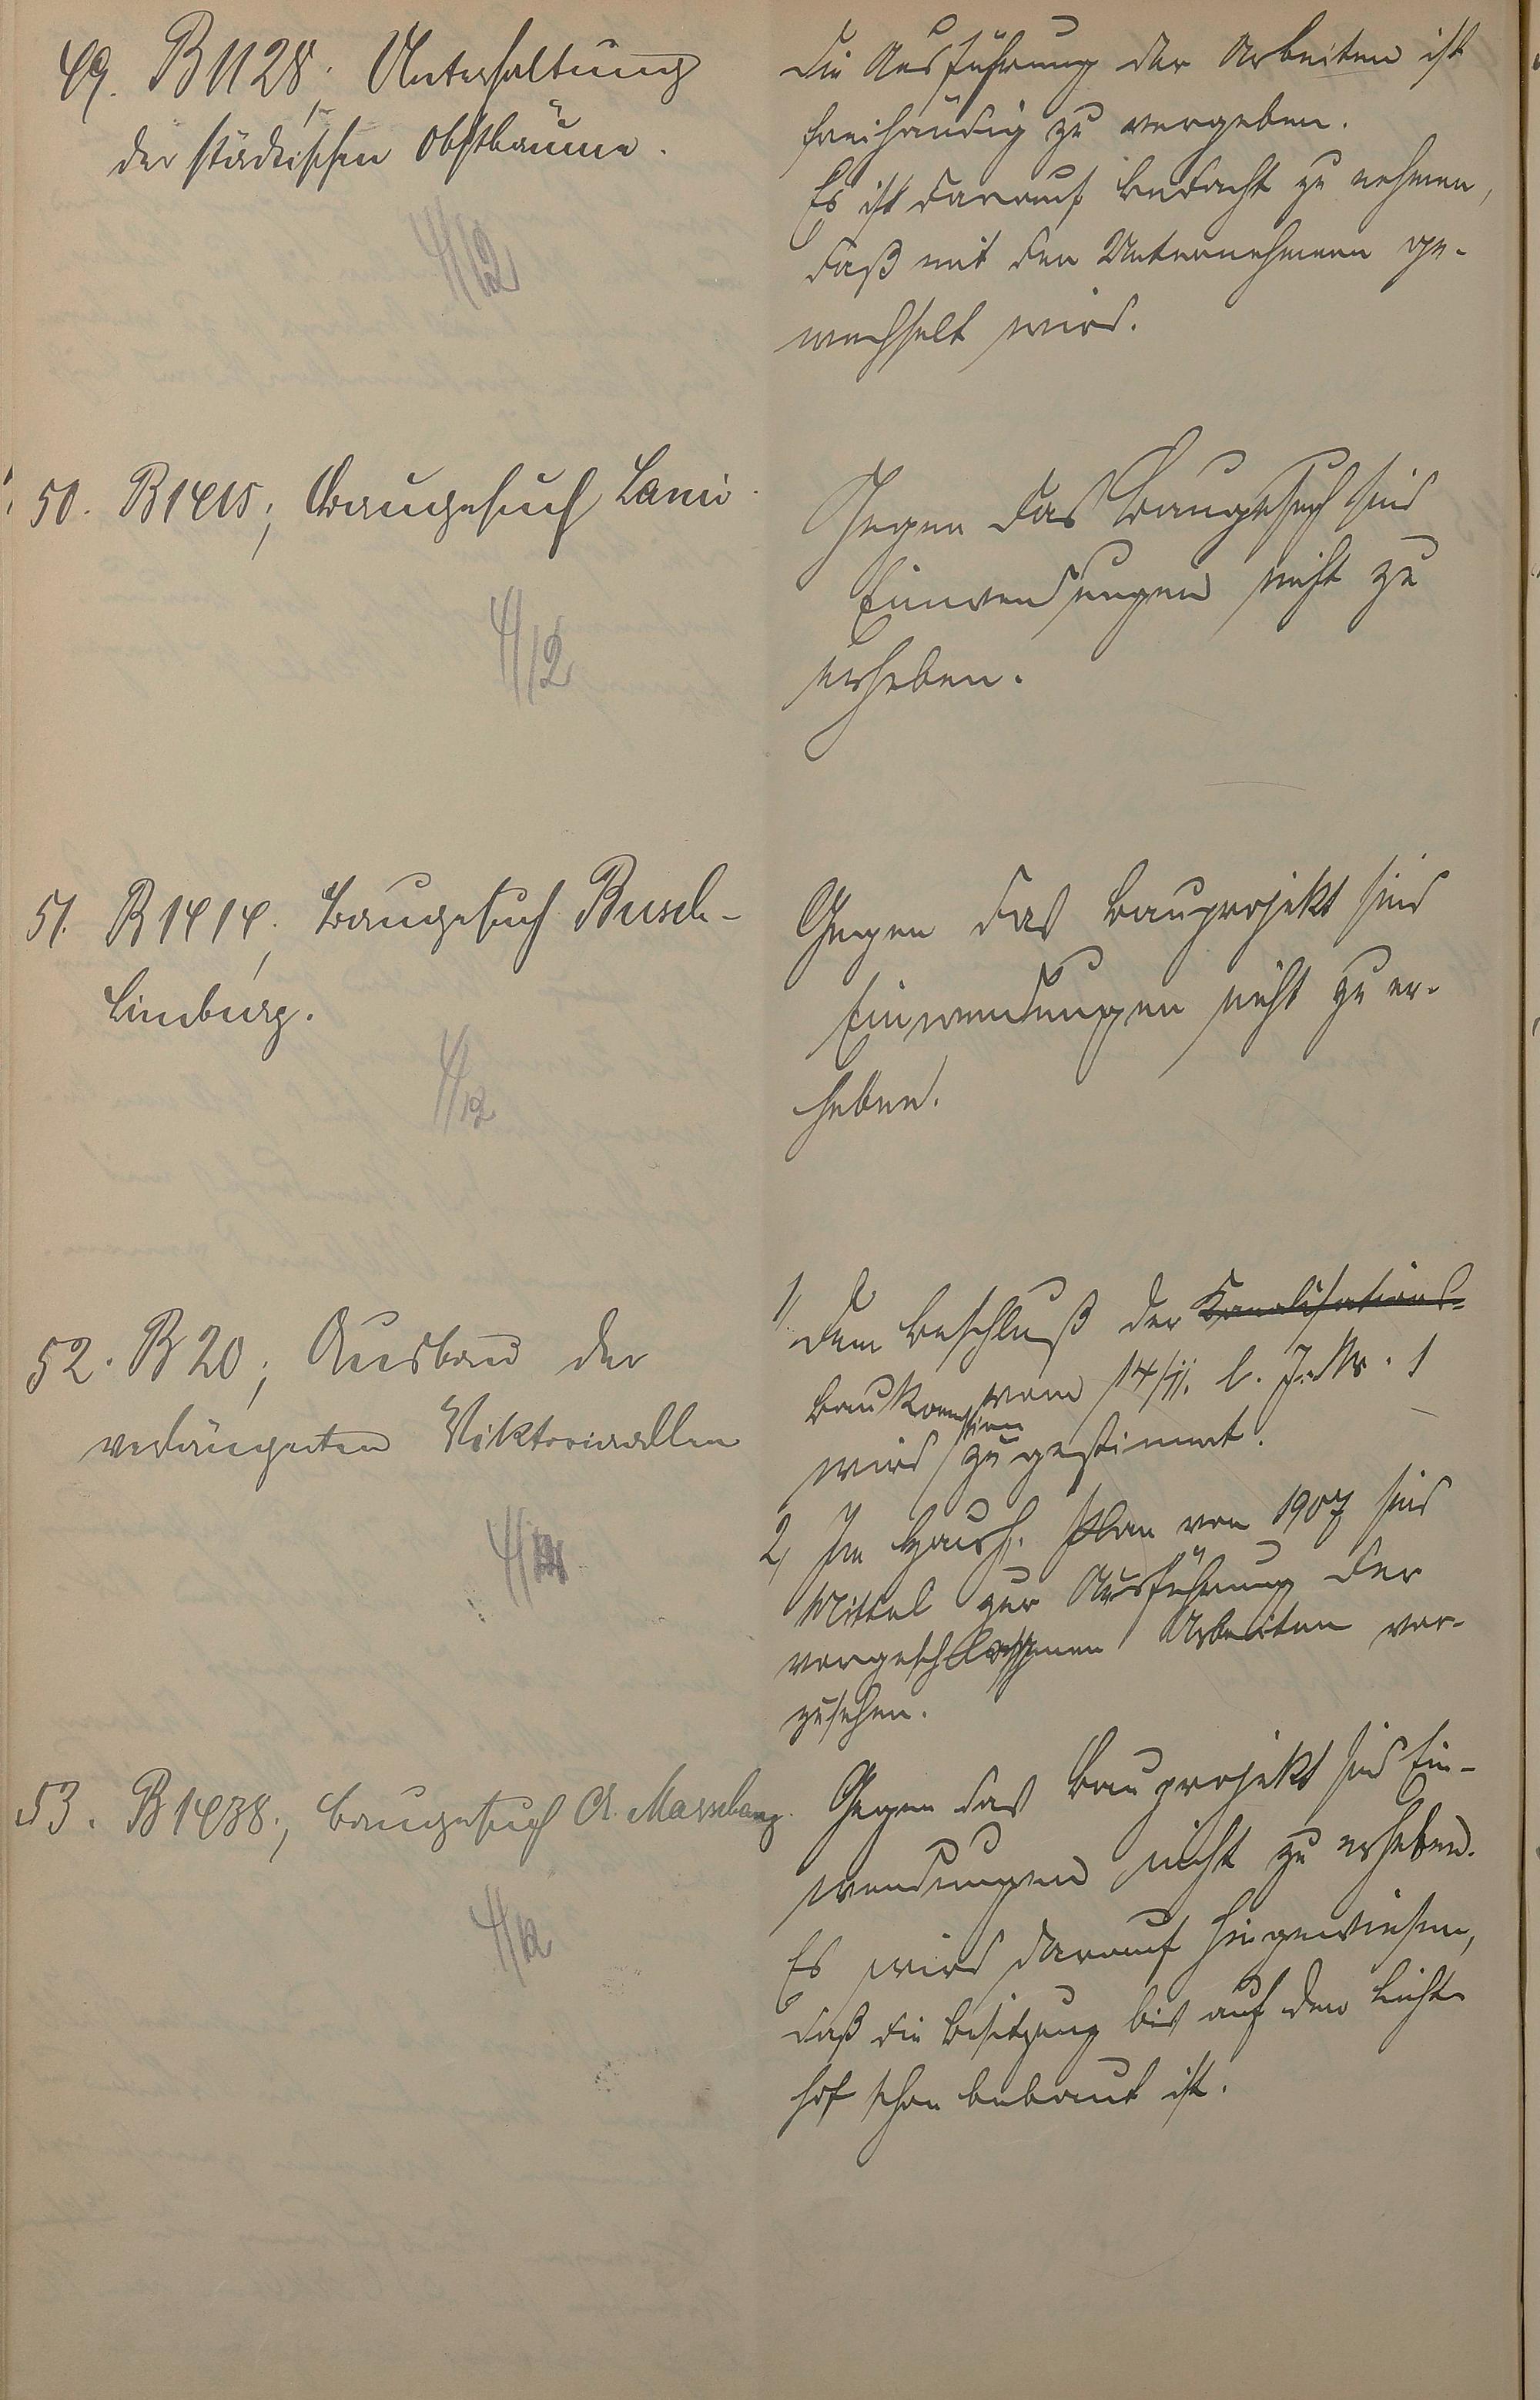 49. B 1128; Unterhaltung
der städtischen Obstbäume.
4/12
Die Ausführung der Arbeiten ist
freihändig zu vergeben.
Es ist darauf Bedacht zu nehmen,
daß mit den Unternehmern ge-
wechselt wird.
50. B 1415; Baugesuch Lanio
4/12
Gegen das Baugesuch sind
Einwendungen nicht zu
erheben.
51. B 1414; Baugesuch Busch-
Limburg.
4/12
Gegen das Bauprojekt sind
Einwendungen nicht zu er-
heben.
52. B 20; Ausbau der
verlängerten Viktoriaallee
4/12
1) Dem Beschluß der Kanalisations-
Baukommission vom 14/11. l. J. Nr. 1
wird zugestimmt.
2) Im Haush. Plan von 1907 sind
Mittel zur Ausführung der
vorgeschlagenen Arbeiten vor-
zusehen.
53. B 1438; Baugesuch A. Massebang.
4/12
Gegen das Bauprojekt sind Ein-
wendungen nicht zu erheben.
Es wird darauf hingewiesen,
daß die Besitzung bis auf den Licht-
hof schon bebaut ist.